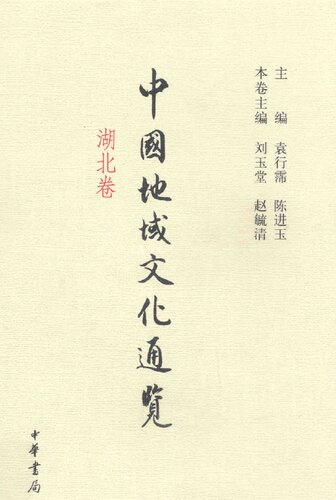 主编 袁行霈 陈进玉
本卷主编 刘玉堂 赵毓清
中國地域文化通覽
湖北卷
中華書局